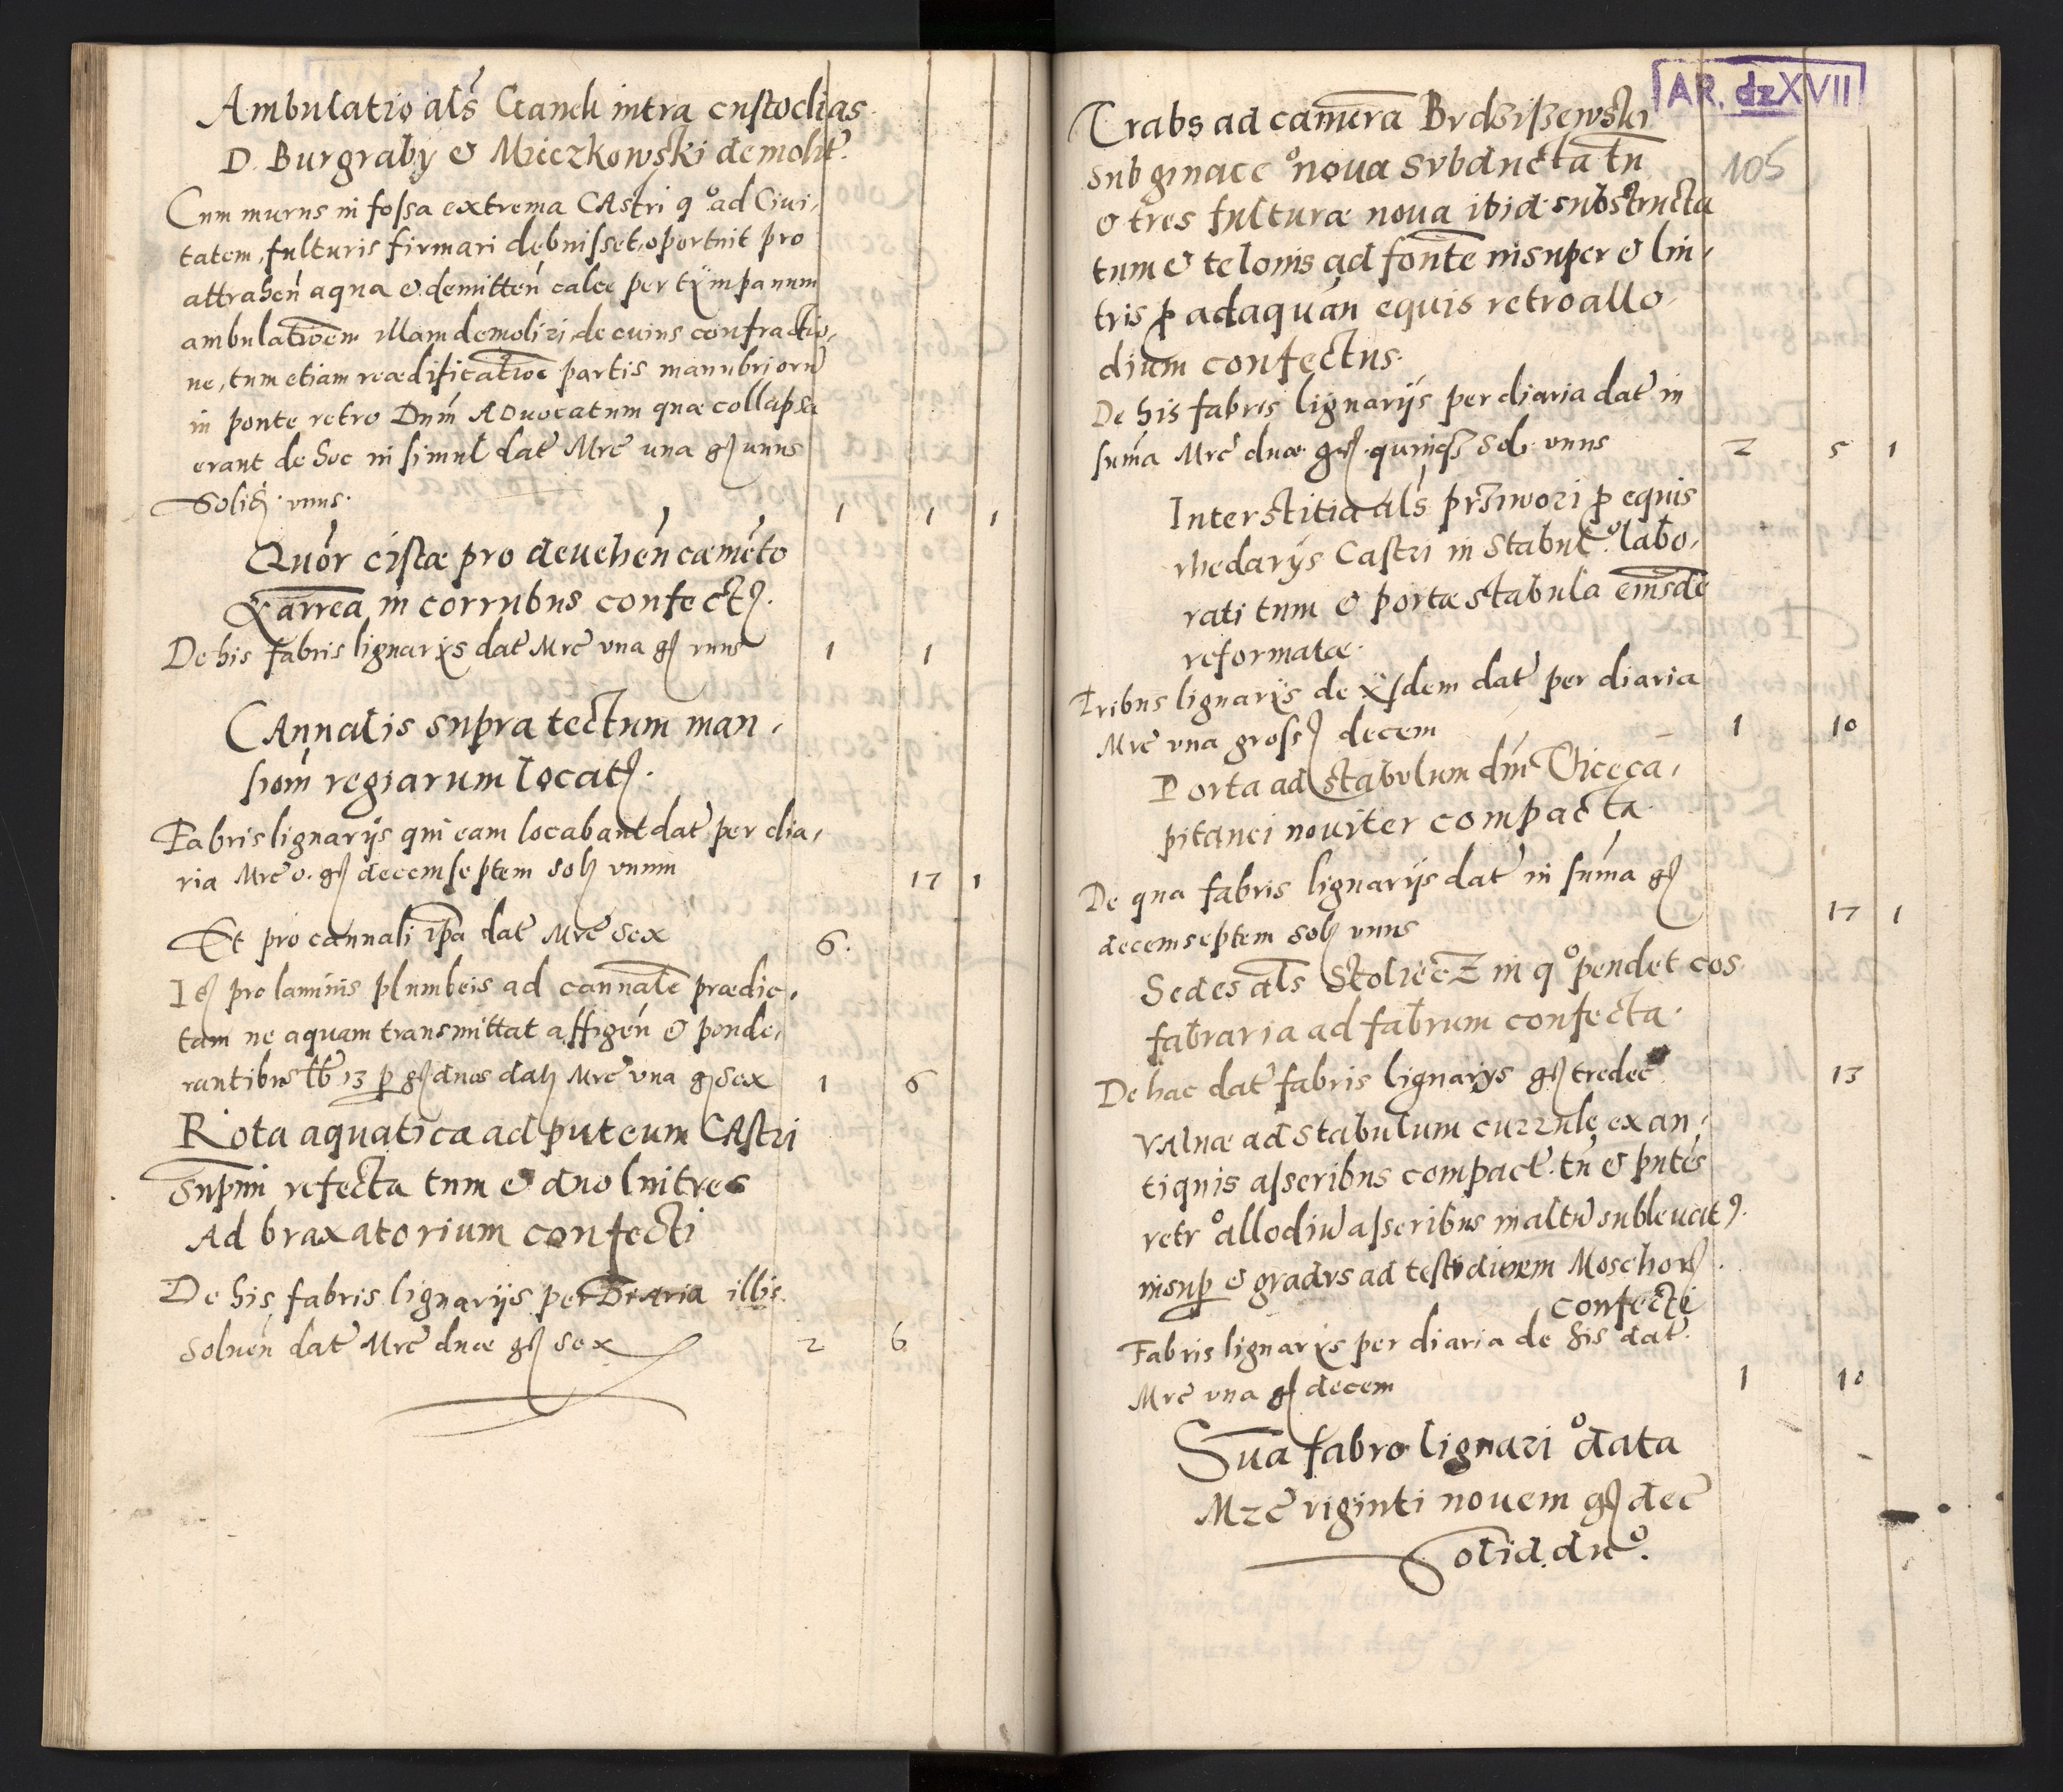 Ambulatio als Ganek intra custodias
D. Burgraby & Mieczkowski demolit.
Cum murus in fossa extrema CAstri q° ad Ciui,
tatem, fulturis firmari debuisset, oportuit pro
attrahen aqua & demitten calce per tÿmpanum
ambulatioem illam demoliri, de cuius confractio,
ne, tum etiam reædificatioe partis manubriorū
in ponte retro Dnm ADuocatum quæ collapsa
erant de hoc in simul dat Mrc una gr unus
Solid. vnus. 1 1 1
Quor cistæ pro deuehen cæmeto
& arrea in corrubus confect.
De his fabris lignarÿs dat Mrc vna gr vnus 1 1
CAnnalis supra tectum man,
sionu regiarum locat.
Fabris lignariÿs qui eam locabant dat per dia,
ria Mrc o. gr decemseptem sol vnum 17 1
Et pro cannali ipa dat Mrc sex 6.
It pro laminis plumbeis ad cannale prædic,
tam ne aquam transmittat affigen & ponde,
rantibus lb 13 p gr duos dat Mrc vna gr sex 1 6
Rota aquatica ad puteum CAstri
Supmi refecta tum & duo luitres
Ad braxatorium confecti
De his fabris lignariÿs per Diaria illis
soluen dat Mrc duæ gr sex 2 6
AR. dzXVII
105
Trabs ad camera Brdziszewski
sub ginace° noua svbducta tn
& tres fulturæ noua ibidē substructa
tum & telonis ad fonte insuper & lin,
tris p adaquan equis retro allo,
dium confectus.
De his fabris lignariÿs per diaria dat in
suma Mrc duæ gr. quinq sol. vnus 2 5 1
Interstitia als przÿwori p equis
rhedarÿs Castri in stabul° labo,
rati tum & portæ stabula eiusde
reformatæ.
Tribus lignarÿs de ÿsdem dat per diaria
Mrc vna gross decem 1 10
Porta ad stabvlum dni Viceca,
pitanei nouiter compacta.
De qua fabris lignariÿs dat in suma gr
decemseptem sol vnus 17 1
Sedes als Stoliecz in q° pendet cos
fabraria ad fabrum confecta.
De hac dat fabris lignarÿs gr tredec 13
VAluæ ad stabulum currule ex an,
tiquis asseribus compact. tn & putes
retr° allodiū asseribus in altū subleuat.
insup & gradvs ad testvdinem Moschor.
confecti
Fabris lignarÿs per diaria de his dat.
Mrc vna gr decem 1 10
Sua fabro lignari° data
Mrc viginti nouem gr dec
Solid. du°.